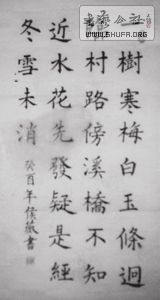 WWW.SHUFA.ORG
一樹寒梅白玉條迥
村路傍溪橋不知
近水花先發疑是經
冬雪未消
癸酉年侯薇書